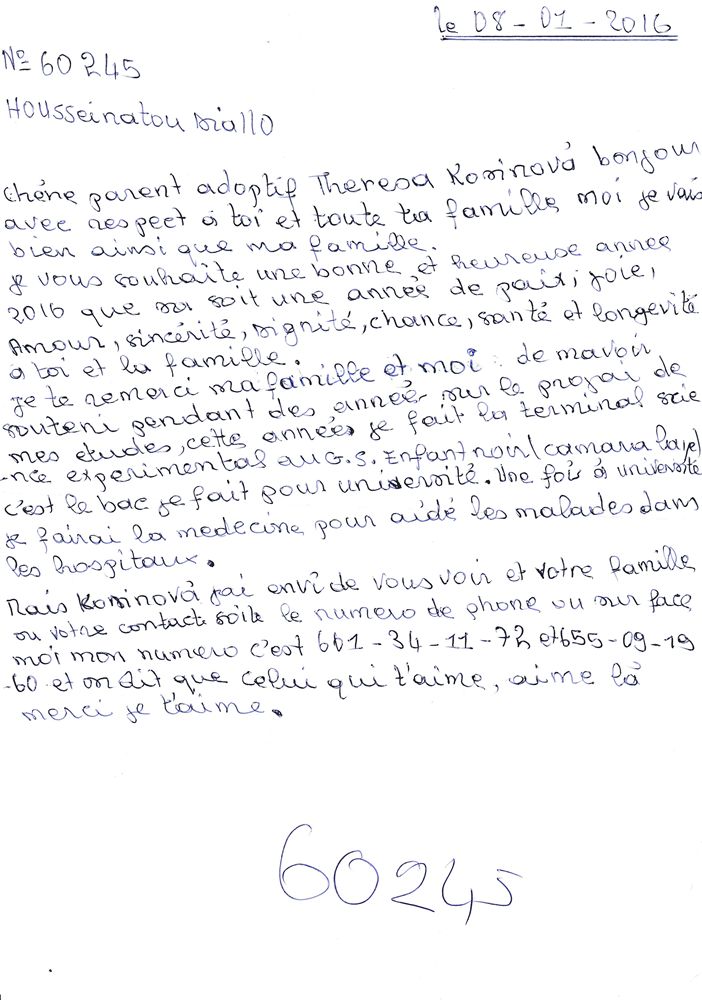 le 08-01-2016
N° 60245
Housseinatou Diallo
chére parent adoptif Theresa Kosinová bonjour
avec respect à toi et toute ta famille moi je vais
bien ainsi que ma famille.
je vous souhaite une bonne et heureuse année
2016 que sa soit une année de paix, joie,
Amour, sincérité, dignité, chance, santé et longevité
à toi et la famille.
je te remerci ma famille et moi : de mavoir
souteni pendant des année sur le projai de
mes etudes, cette années je fait la terminal scie
-nce experimental au G.S. Enfant noir (camara laye)
c'est le bac je fait pour université. Une fois à université
je fairai la medecine pour aidé les malades dans
les hospitaux.
Mais Kosinová j'ai envi de vous voir et votre famille
ou votre contact soite le numero de phone ou sur face
moi mon numero c'est 661-34-11-72 et 655-09-19
-60 et on dit que celui qui t'aime, aime là
merci je t'aime.
60245